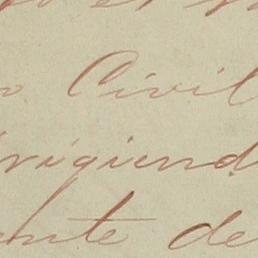 o Civil
rigiend
ente de